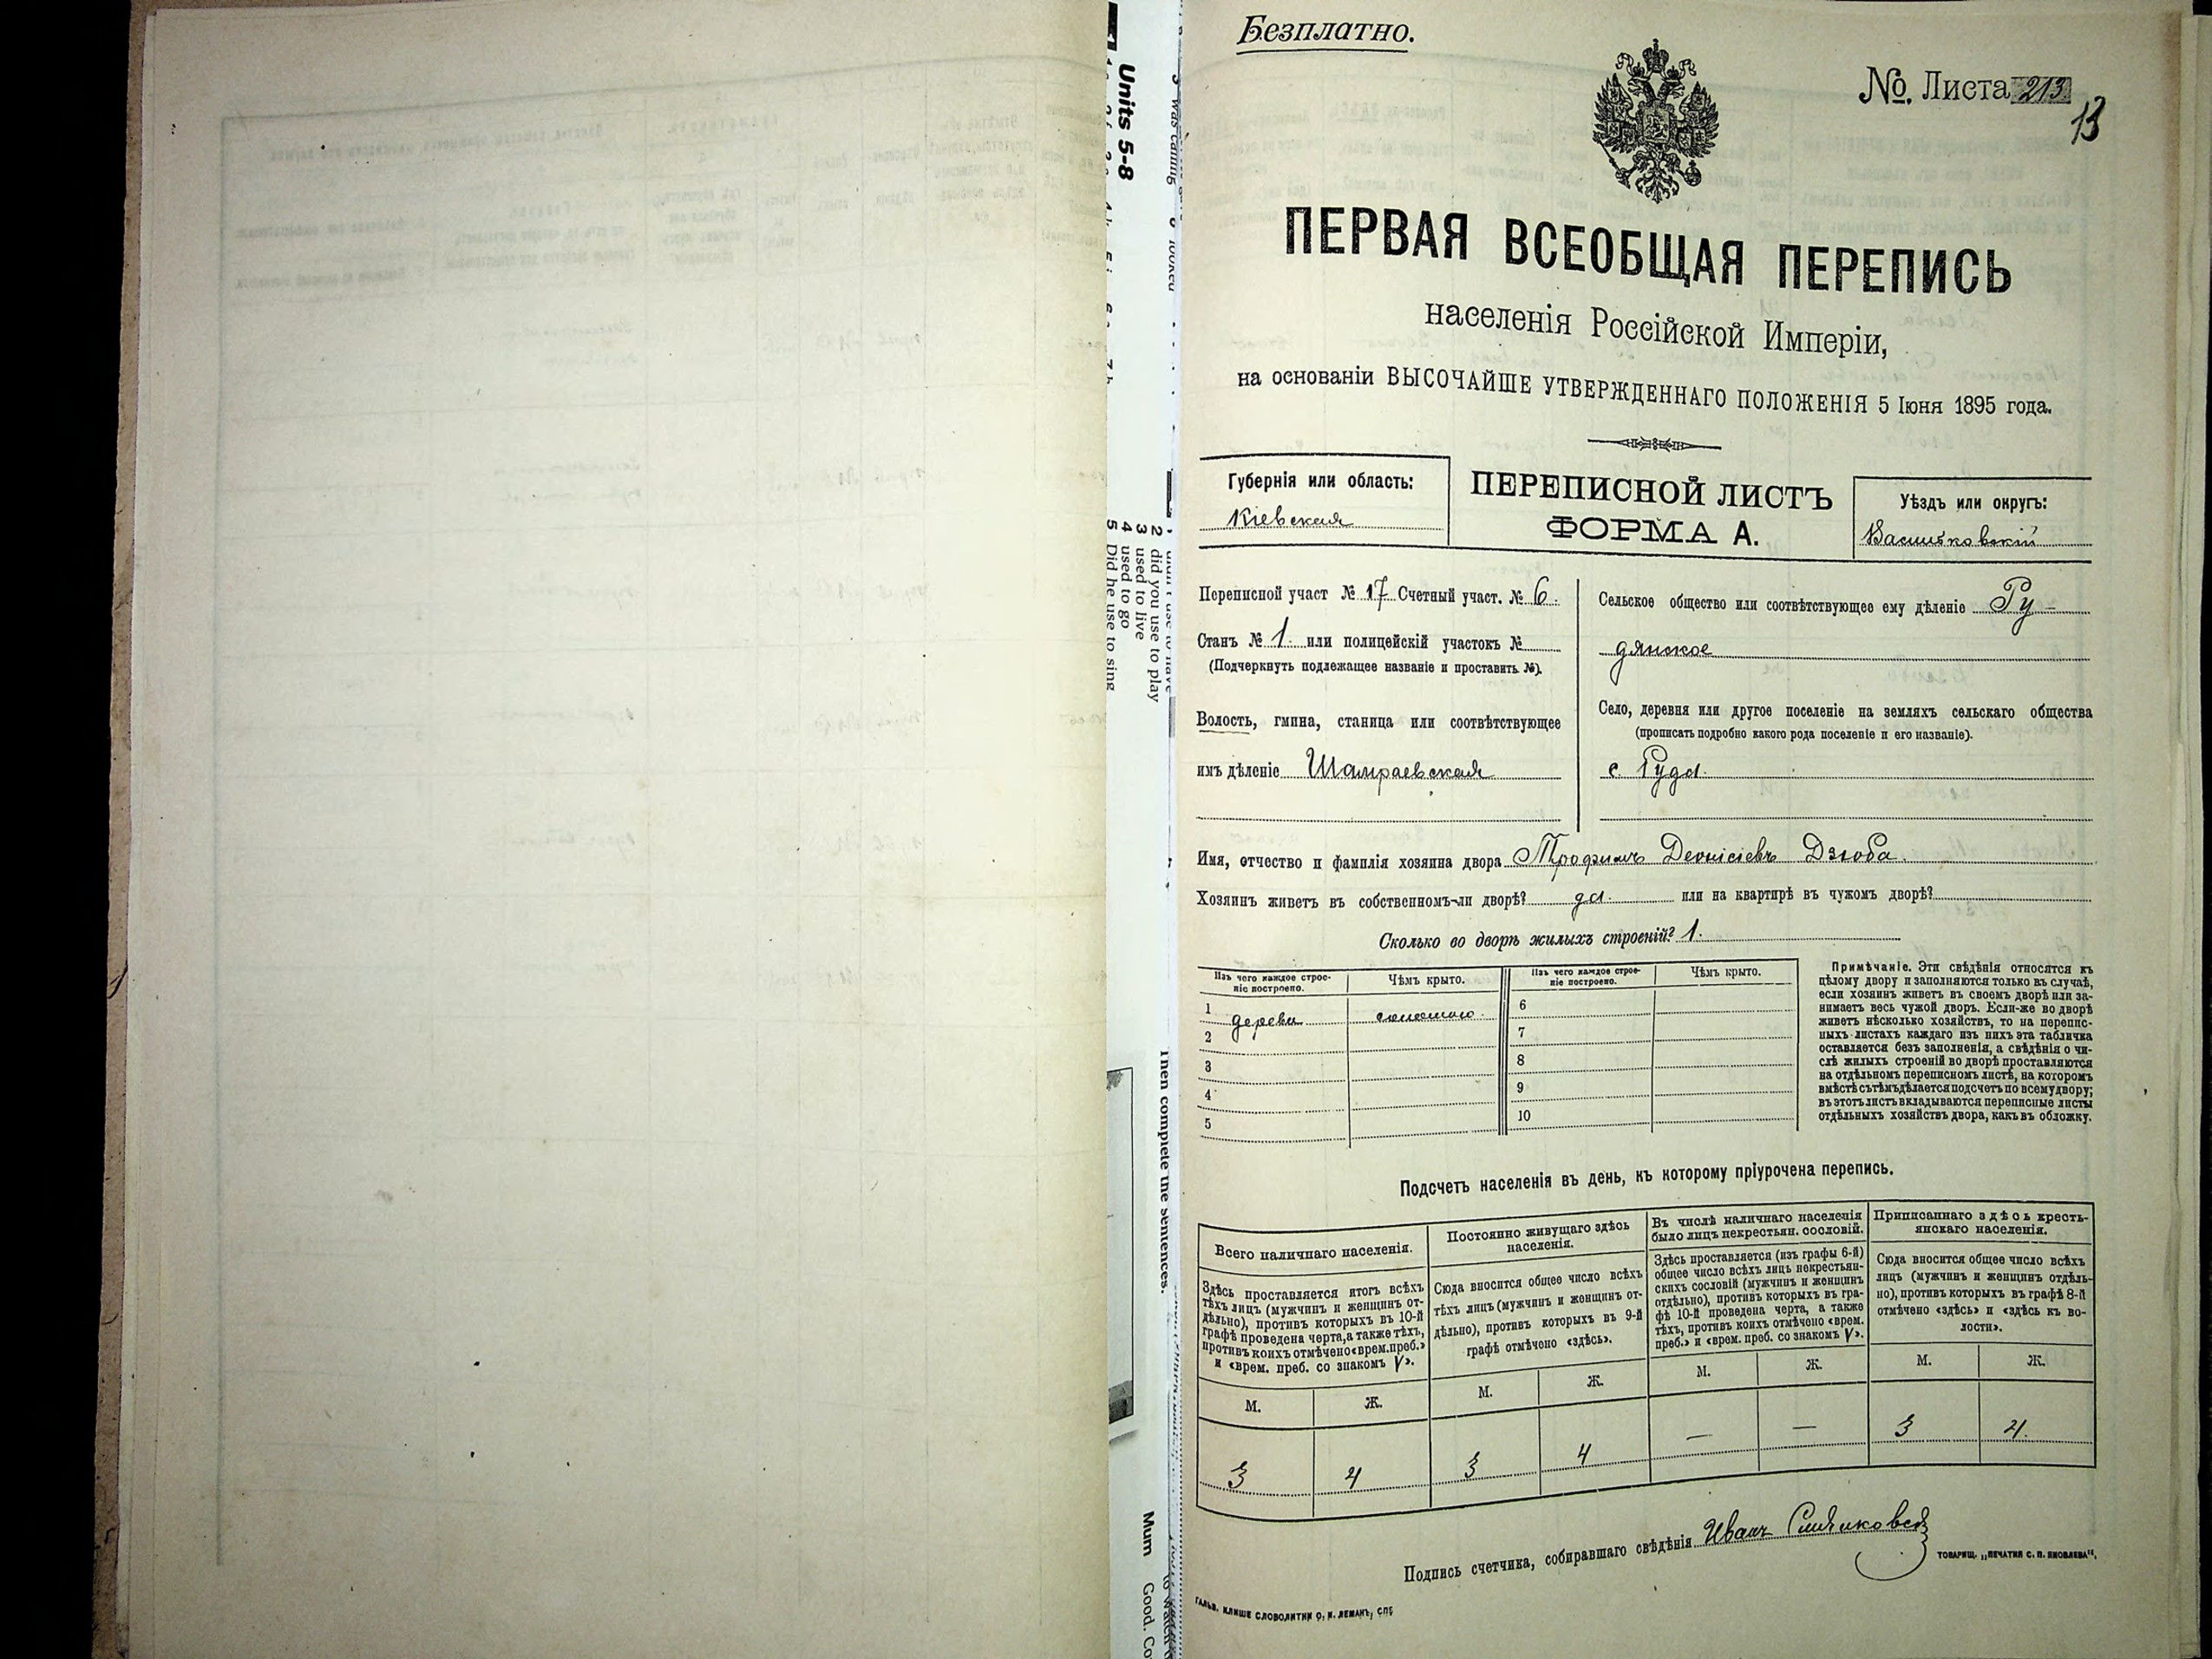 Безплатно.
№. Листа 213
13
ПЕРВАЯ ВСЕОБЩАЯ ПЕРЕПИСЬ
населенія Россійской Имперіи,
на основаніи ВЫСОЧАЙШЕ УТВЕРЖДЕННАГО ПОЛОЖЕНІЯ 5 Іюня 1895 года.
Губернія или область:
Кіевская
ПЕРЕПИСНОЙ ЛИСТЪ
ФОРМА А.
Уѣздъ или округъ:
Васильковскій
Переписной участ № 17 Счетный участ. № 6.
Станъ № 1. или полицейскій участокъ №
(Подчеркнуть подлежащее названіе и проставить №).
Волость, гмина, станица или соотвѣтствующее
имъ дѣленіе Шамраевская
Сельское общество или соотвѣтствующее ему дѣленіе Ру-
дянское
Село, деревня или другое поселеніе на земляхъ сельскаго общества
(прописать подробно какого рода поселеніе и его названіе).
с. Руда.
Имя, отчество и фамилія хозяина двора Трофимъ Деонісіевъ Дзюба.
Хозяинъ живетъ въ собственномъ-ли дворѣ? да. или на квартирѣ въ чужомъ дворѣ?
Сколько во дворѣ жилыхъ строеній? 1.
Изъ чего каждое строе-
ніе построено.
Чѣмъ крыто.
Изъ чего каждое строе-
ніе построено.
Чѣмъ крыто.
1 дерева соломою.
2
3
4
5
6
7
8
9
10
Примѣчаніе. Эти свѣдѣнія относятся къ
цѣлому двору и заполняются только въ случаѣ,
если хозяинъ живетъ въ своемъ дворѣ или за-
нимаетъ весь чужой дворъ. Если-же во дворѣ
живетъ нѣсколько хозяйствъ, то на перепис-
ныхъ листахъ каждаго изъ нихъ эта табличка
оставляется безъ заполненія, а свѣдѣнія о чи-
слѣ жилыхъ строеній во дворѣ проставляются
на отдѣльномъ переписномъ листѣ, на которомъ
вмѣстѣ съ тѣмъ дѣлается подсчетъ по всему двору;
въ этотъ листъ вкладываются переписные листы
отдѣльныхъ хозяйствъ двора, какъ въ обложку.
Подсчетъ населенія въ день, къ которому пріурочена перепись.
Всего наличнаго населенія.
Здѣсь проставляется итогъ всѣхъ
тѣхъ лицъ (мужчинъ и женщинъ от-
дѣльно), противъ которыхъ въ 10-й
графѣ проведена черта, а также тѣхъ,
противъ коихъ отмѣчено «врем. преб.»
и «врем. преб. со знакомъ V».
М. Ж.
3 4
Постоянно живущаго здѣсь
населенія.
Сюда вносится общее число всѣхъ
тѣхъ лицъ (мужчинъ и женщинъ от-
дѣльно), противъ которыхъ въ 9-й
графѣ отмѣчено «здѣсь».
М. Ж.
3 4
Въ числѣ наличнаго населенія
было лицъ некрестьян. сословій.
Здѣсь проставляется (изъ графы 6-й)
общее число всѣхъ лицъ некрестьян-
скихъ сословій (мужчинъ и женщинъ
отдѣльно), противъ которыхъ въ гра-
фѣ 10-й проведена черта, а также
тѣхъ, противъ коихъ отмѣчено «врем.
преб.» и «врем. преб. со знакомъ V».
М. Ж.
— —
Приписаннаго здѣсь кресть-
янскаго населенія.
Сюда вносится общее число всѣхъ
лицъ (мужчинъ и женщинъ отдѣль-
но), противъ которыхъ въ графѣ 8-й
отмѣчено «здѣсь» и «здѣсь къ во-
лости».
М. Ж.
3 4.
Подпись счетчика, собиравшаго свѣдѣнія Иванъ
ТОВАРИЩ. „ПЕЧАТНЯ С. П. ЯКОВЛЕВА“.
ГАЛЬВ. КЛИШЕ СЛОВОЛИТНИ О. И. ЛЕМАНЪ, СПБ
Units 5-8
2 did you use to play
3 used to live
4 used to go
5 Did he use to sing
Then complete the sentences.
Mum Good.